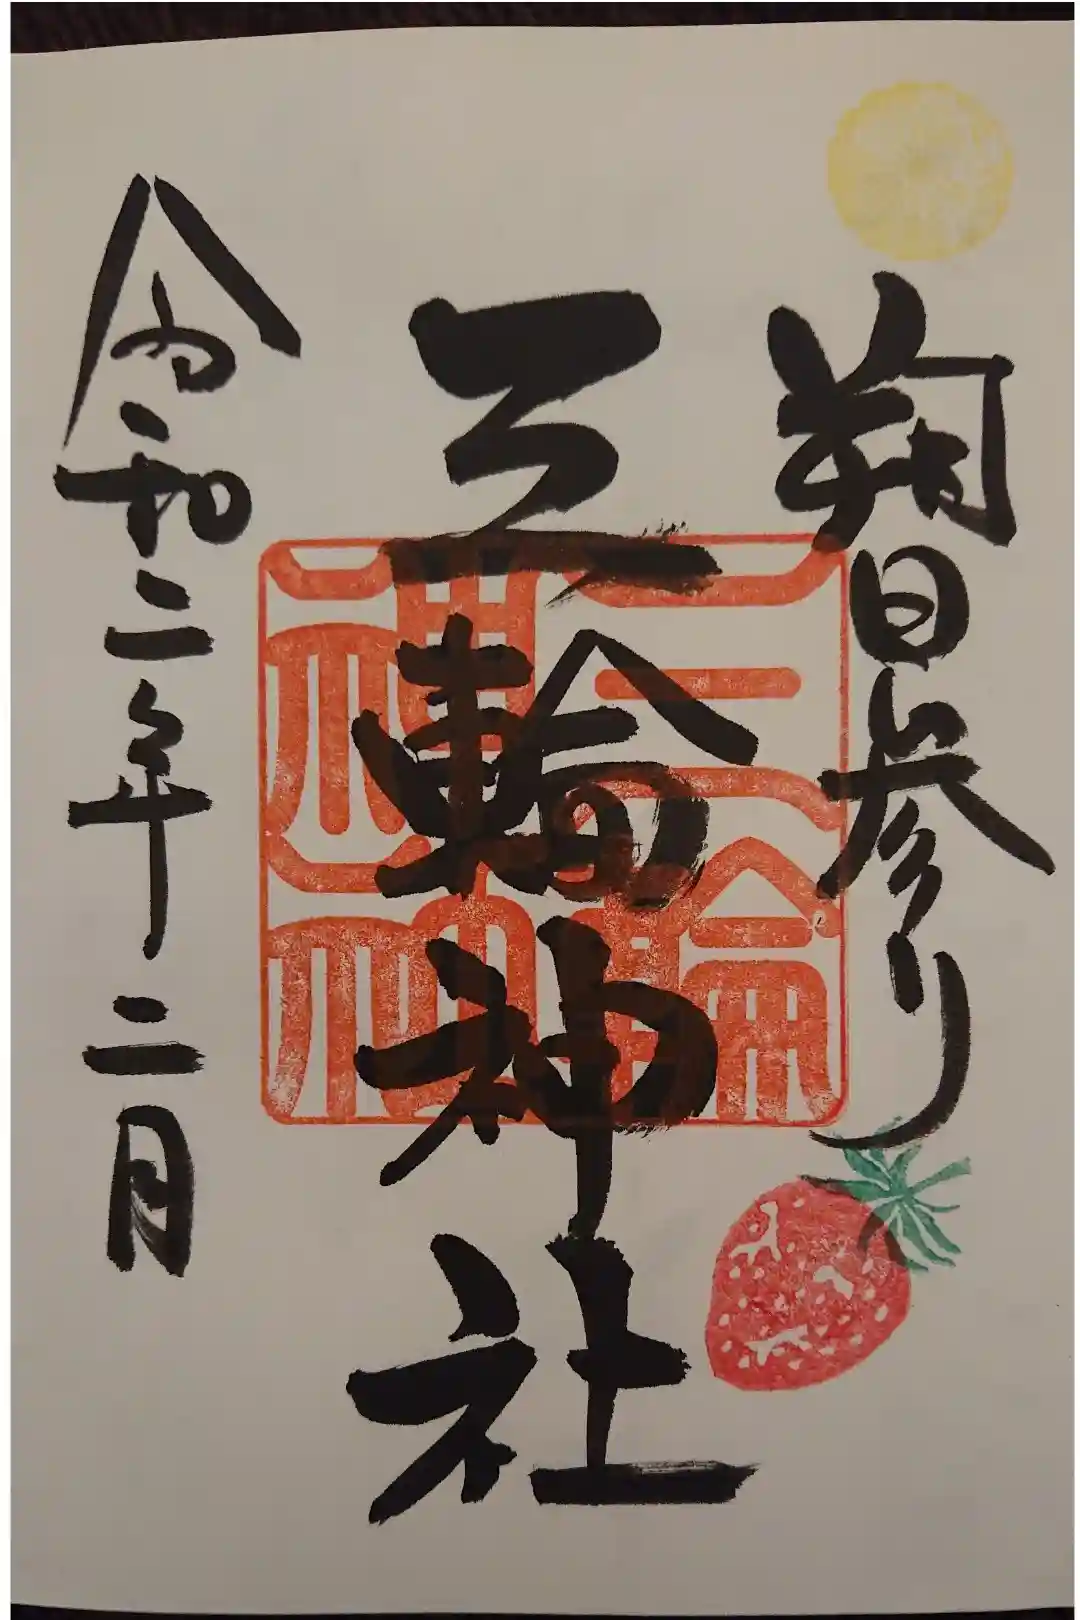 朔日参り
三輪神社
三輪神社
令和二年二月